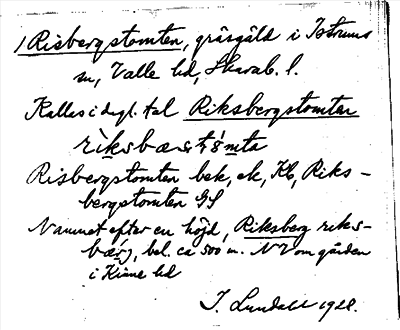 1 Risbergstomten, gräsgäld i Istrums
sn, Valle hd, Skarab. l.
Kallas i dagl. tal Riksbergstomten
Risbergstomten bek, ek, Kb, Riks-
bergstomten GS
Namnet efter en höjd, Riksberg riks-
bærj, bel. ca 500 m. NV om gården
i Kinne hd
J. Lundahl 1928.